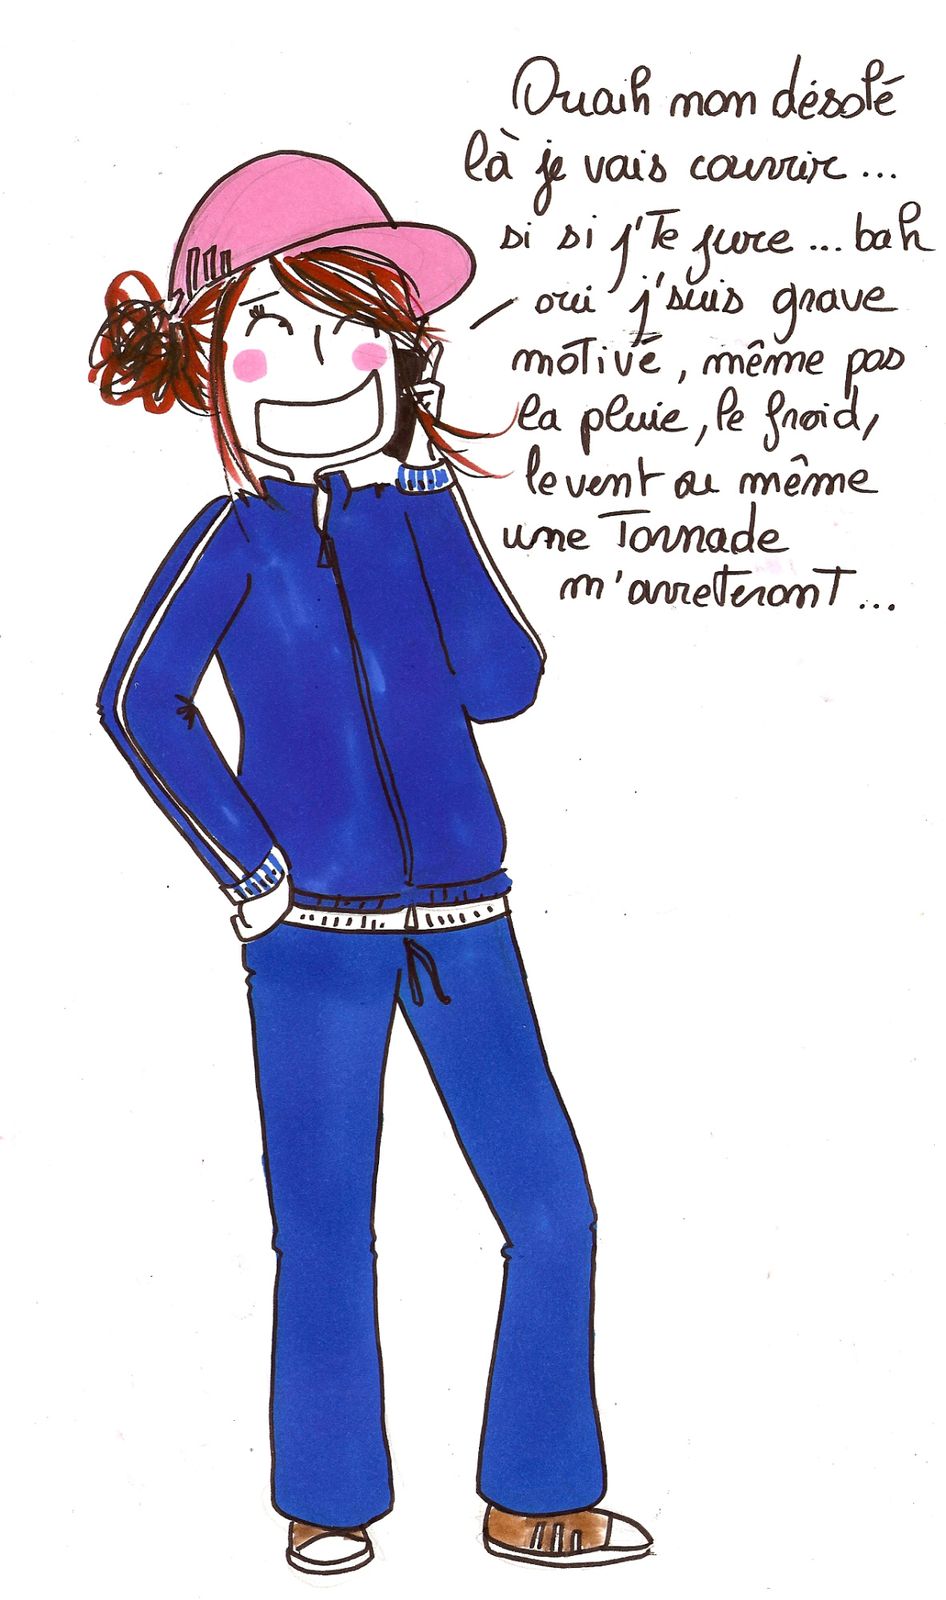 Ouaih non désolé
là je vais courrir...
si si j'te jure... bah
oui j'suis grave
motivé, même pas
la pluie, le froid,
le vent ou même
une Tornade
m'arreteront...